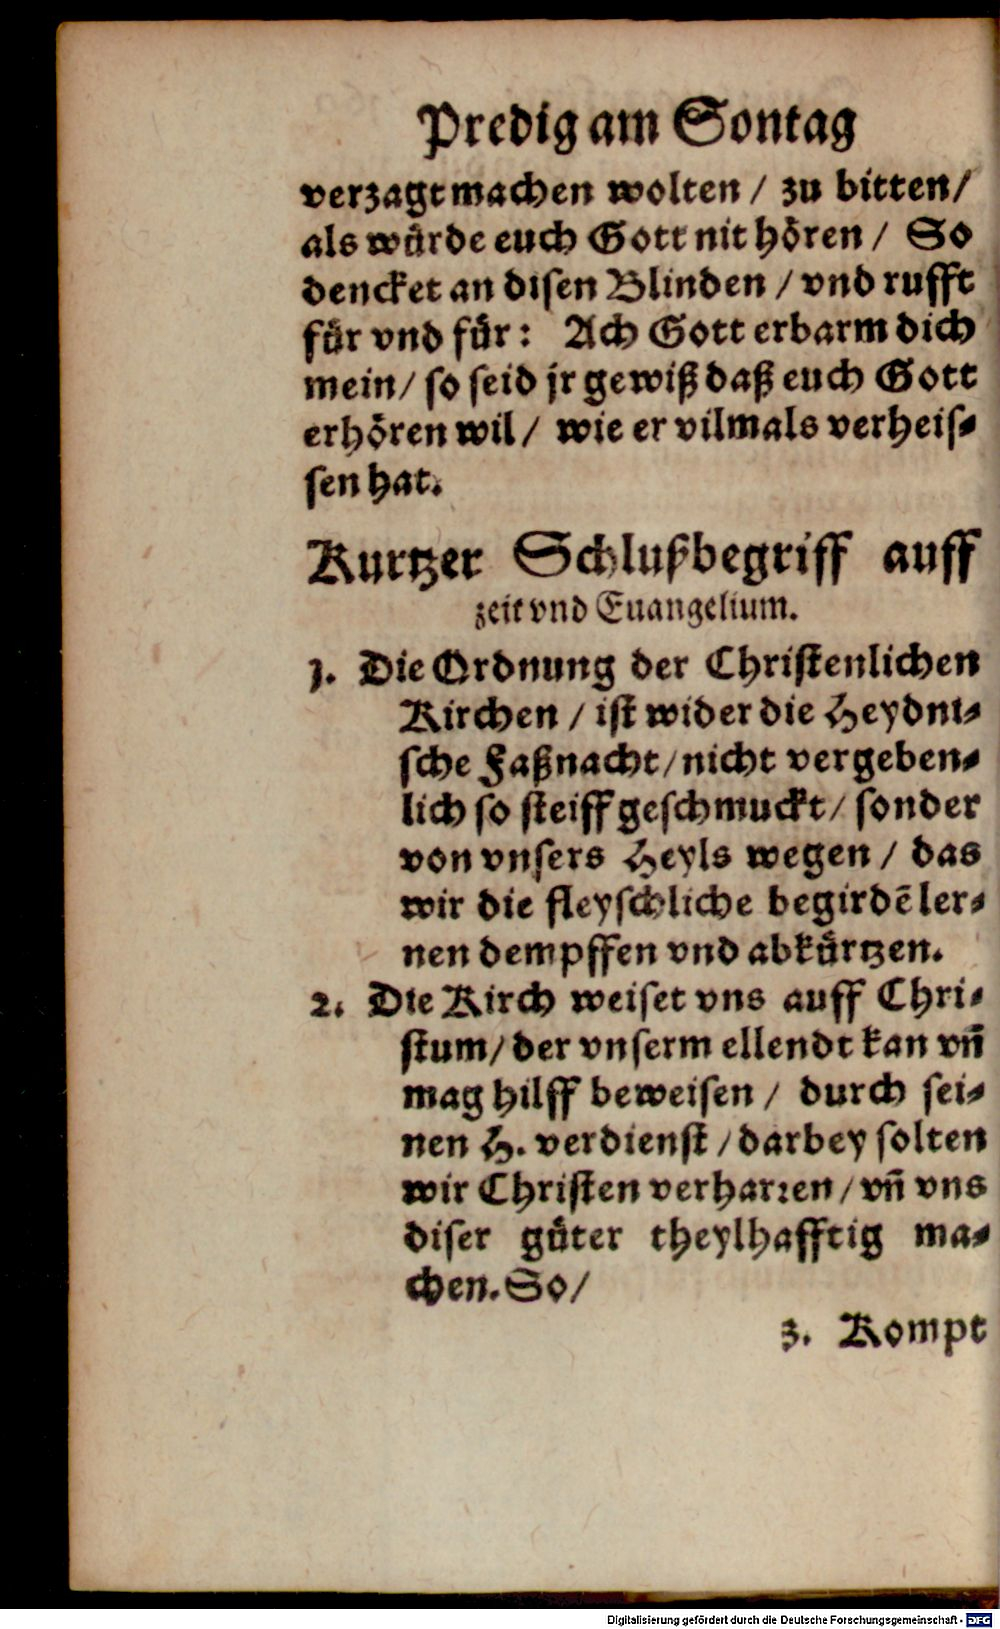 Predig am Sontag
verzagt machen wolten / zu bitten /
als wuͤrde euch Gott nit hoͤren / So
dencket an disen Blinden / vnd rufft
fuͤr vnd fuͤr: Ach Gott erbarm dich
mein / so seid jr gewiß daß euch Gott
erhoͤren wil / wie er vilmals verheis⸗
sen hat.
Kurtzer Schlußbegriff auff
zeit vnd Euangelium.
1. Die Ordnung der Christenlichen
Kirchen / ist wider die Heydni⸗
sche Faßnacht / nicht vergeben⸗
lich so steiff geschmuckt / sonder
von vnsers Heyls wegen / das
wir die fleyschliche begirdẽ ler⸗
nen dempffen vnd abkuͤrtzen.
2. Die Kirch weiset vns auff Chri⸗
stum / der vnserm ellendt kan vñ
mag hilff beweisen / durch sei⸗
nen H. verdienst / darbey solten
wir Christen verharꝛen / vñ vns
diser guͤter theylhafftig ma⸗
chen. So /
3. Kompt
Digitalisierung gefördert durch die Deutsche Forschungsgemeinschaft - DFG